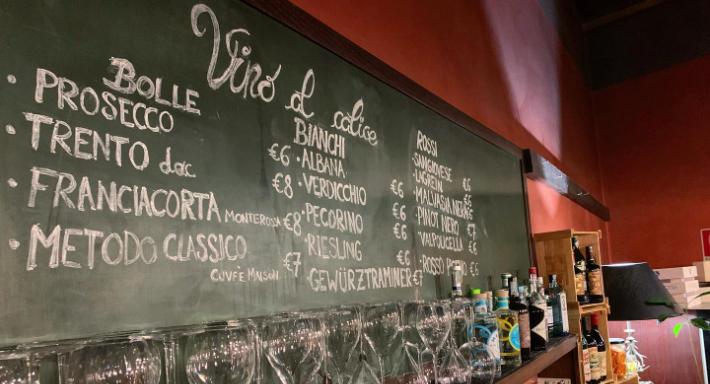 Vino al calice
BOLLE
· PROSECCO €6
· TRENTO doc €8
· FRANCIACORTA MONTEROSSA €8
· METODO CLASSICO €7
CUVÉE MAISON
BIANCHI
· ALBANA
· VERDICCHIO €6
· PECORINO €6
· RIESLING €6
· GEWÜRZTRAMINER €7
ROSSI
· SANGIOVESE €6
· LAGREIN
· MALVASIA NERA €6
· PINOT NERO €7
· VALPOLICELLA €6
· ROSSO €6